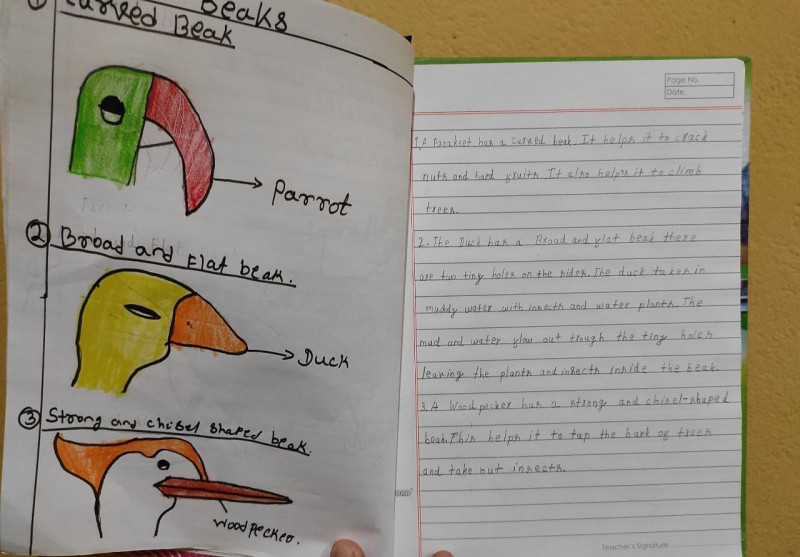 Beaks
① Curved Beak
Parrot
② Broad and Flat beak.
Duck
③ Strong and chisel shaped beak.
Woodpecker.
Page No.
Date.
1. A Parakeet has a curved beak. It helps it to crack
nuts and hard fruits It also helps it to climb
trees.
2. The Duck has a Broad and flat beak there
are two tiny holes on the sides. The duck takes in
muddy water with insects and water plants. The
mud and water flow out trough the tiny holes
leaving the plants and insects inside the beak.
3. A Woodpecker has a strong and chisel-shaped
beak. This helps it to tap the bark of trees
and take out insects.
Teacher's Signature